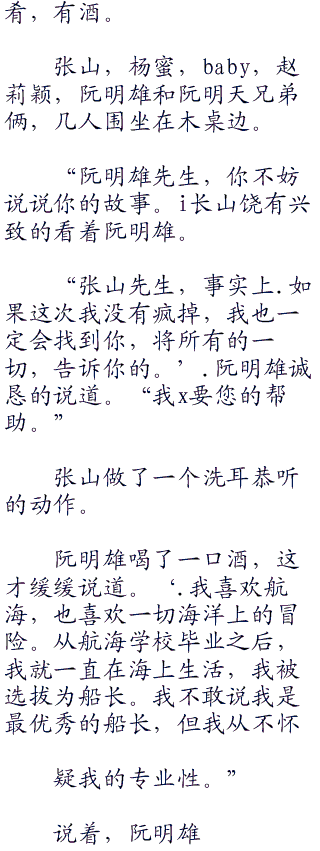 肴，有酒。
张山，杨蜜，baby，赵
莉颖，阮明雄和阮明天兄弟
俩，几人围坐在木桌边。
“阮明雄先生，你不妨
说说你的故事。i长山饶有兴
致的看着阮明雄。
“张山先生，事实上.如
果这次我没有疯掉，我也一
定会找到你，将所有的一
切，告诉你的。’.阮明雄诚
恳的说道。“我x要您的帮
助。”
张山做了一个洗耳恭听
的动作。
阮明雄喝了一口酒，这
才缓缓说道。‘.我喜欢航
海，也喜欢一切海洋上的冒
险。从航海学校毕业之后，
我就一直在海上生活，我被
选拔为船长。我不敢说我是
最优秀的船长，但我从不怀
疑我的专业性。”
说着，阮明雄